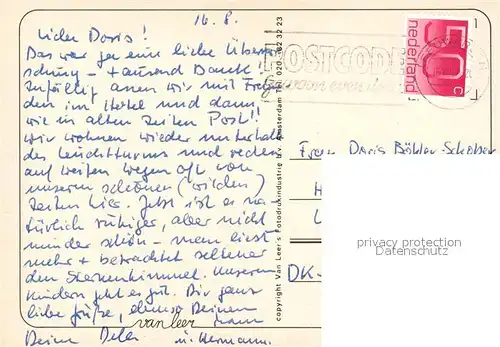 16.8.
Liebe Doris!
Das war ja eine liebe Überra-
schung – tausend Dank!
Zufällig waren wir mit
den im Hotel und dann
wie in alten Zeiten Post!!
Wir wohnen wieder unterhalb
des Leuchtturms und reden
auf weiten Wegen oft von
unseren schönen (wilden)
Zeiten hier. Jetzt ist es na-
türlich ruhiger, aber nicht
minder schön – man liest
mehr + betrachtet seltener
den Sternenhimmel. Unseren
Kindern geht es gut. Dir ganz
liebe Grüße, ebenso Deinem
van leer
Deine
u. Hermann.
copyright Van Leer's Fotodrukindustrie b.v. Amsterdam Tel. 020-182 32 23
POSTCODE
50c
nederland
Frau Doris
privacy protection
Datenschutz
DK-